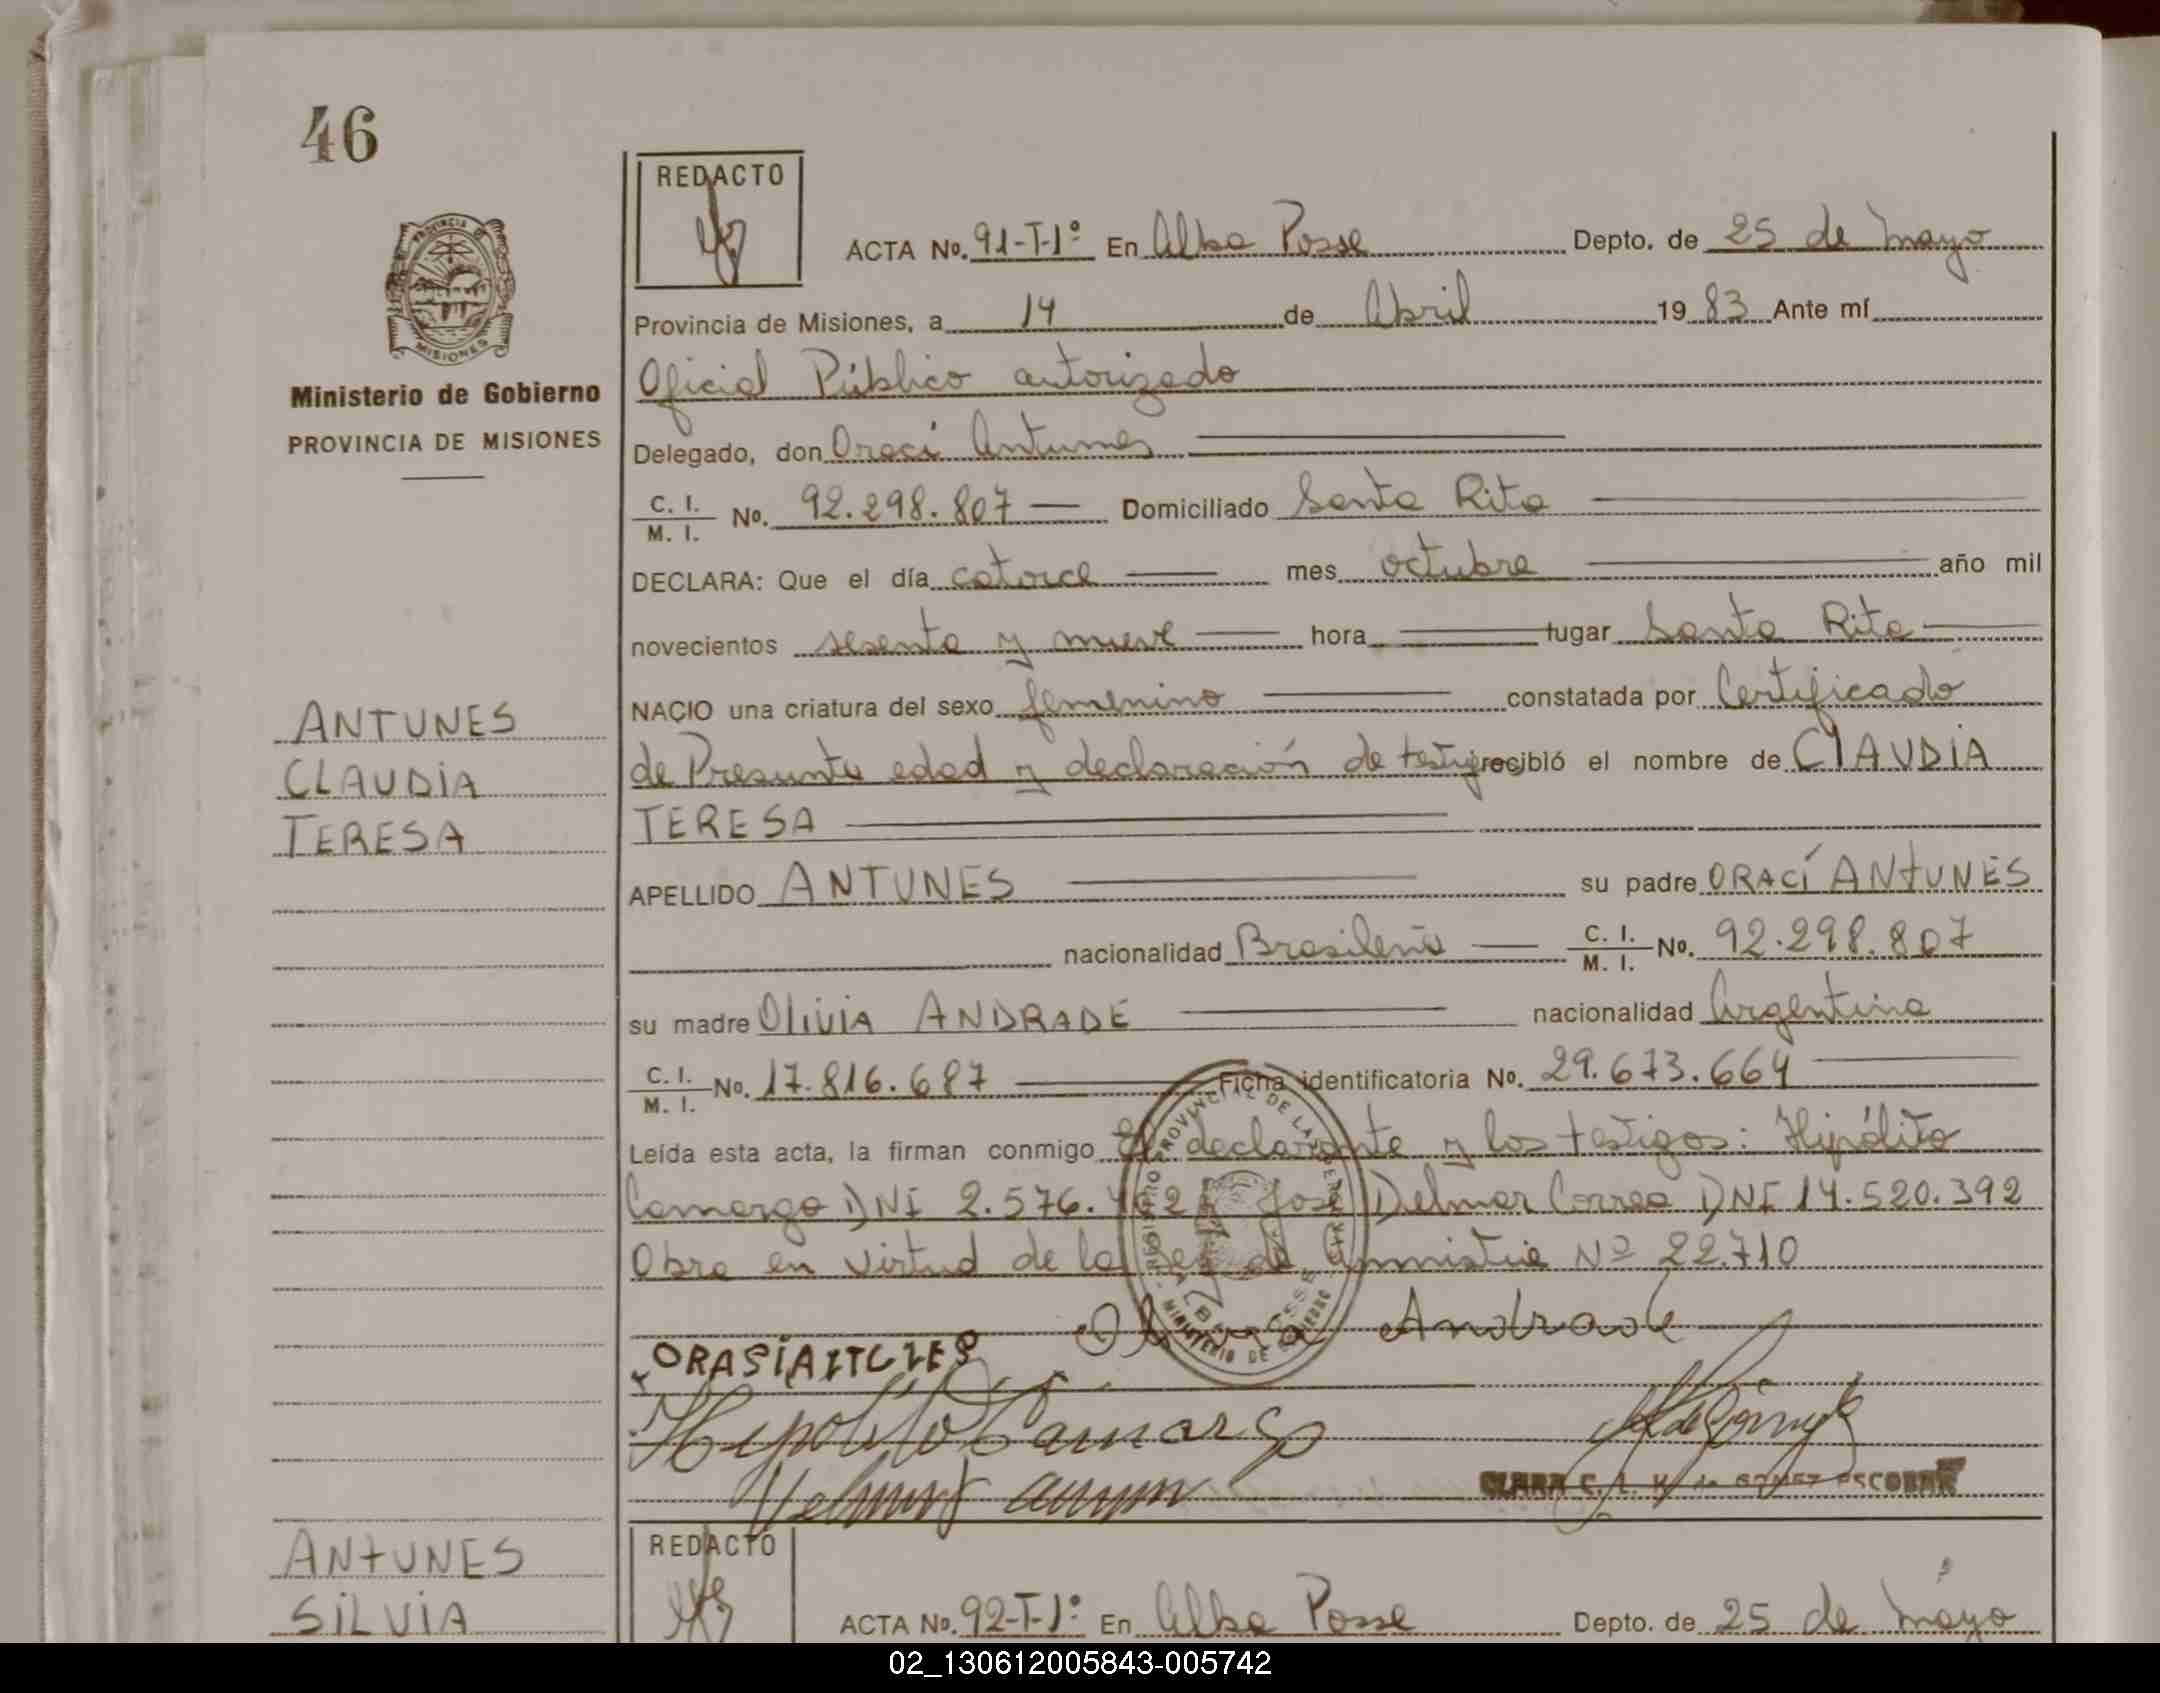 46
PROVINCIA DE
MISIONES
Ministerio de Gobierno
PROVINCIA DE MISIONES
ANTUNES
CLAUDIA
TERESA
REDACTO
ACTA No. 91-T-1º En Alba Posse Depto. de 25 de Mayo
Provincia de Misiones, a 14 de Abril 19 83 Ante mí
Oficial Público autorizado
Delegado, don Oraci Antunes
C. I. / M. I. No. 92.298.807 Domiciliado Santa Rita
DECLARA: Que el día catorce mes octubre año mil
novecientos sesenta y nueve hora lugar Santa Rita
NACIO una criatura del sexo femenino constatada por Certificado
de Presunta edad y declaración de testig recibió el nombre de CLAUDIA
TERESA
APELLIDO ANTUNES su padre ORACÍ ANTUNES
nacionalidad Brasileña C. I. / M. I. No. 92.298.807
su madre OLIVIA ANDRADE nacionalidad Argentina
C. I. / M. I. No. 17.816.687 Ficha identificatoria No. 29.673.664
Leída esta acta, la firman conmigo El declarante y los testigos: Hipólito
Camargo DNI 2.576. José Delmar Correa DNI 14.520.392
Obra en virtud de la ley de Amnistia Nº 22.710
REGISTRO PROVINCIAL DE LAS PERSONAS
MINISTERIO DE GOBIERNO
Andrade
ORASIAITCIES
Hipolito Camargo
CLARA C. L. H. de GOMEZ ESCOBAR
ANTUNES
SILVIA
REDACTO
ACTA No. 92-T-1º En Alba Posse Depto. de 25 de Mayo
02_130612005843-005742